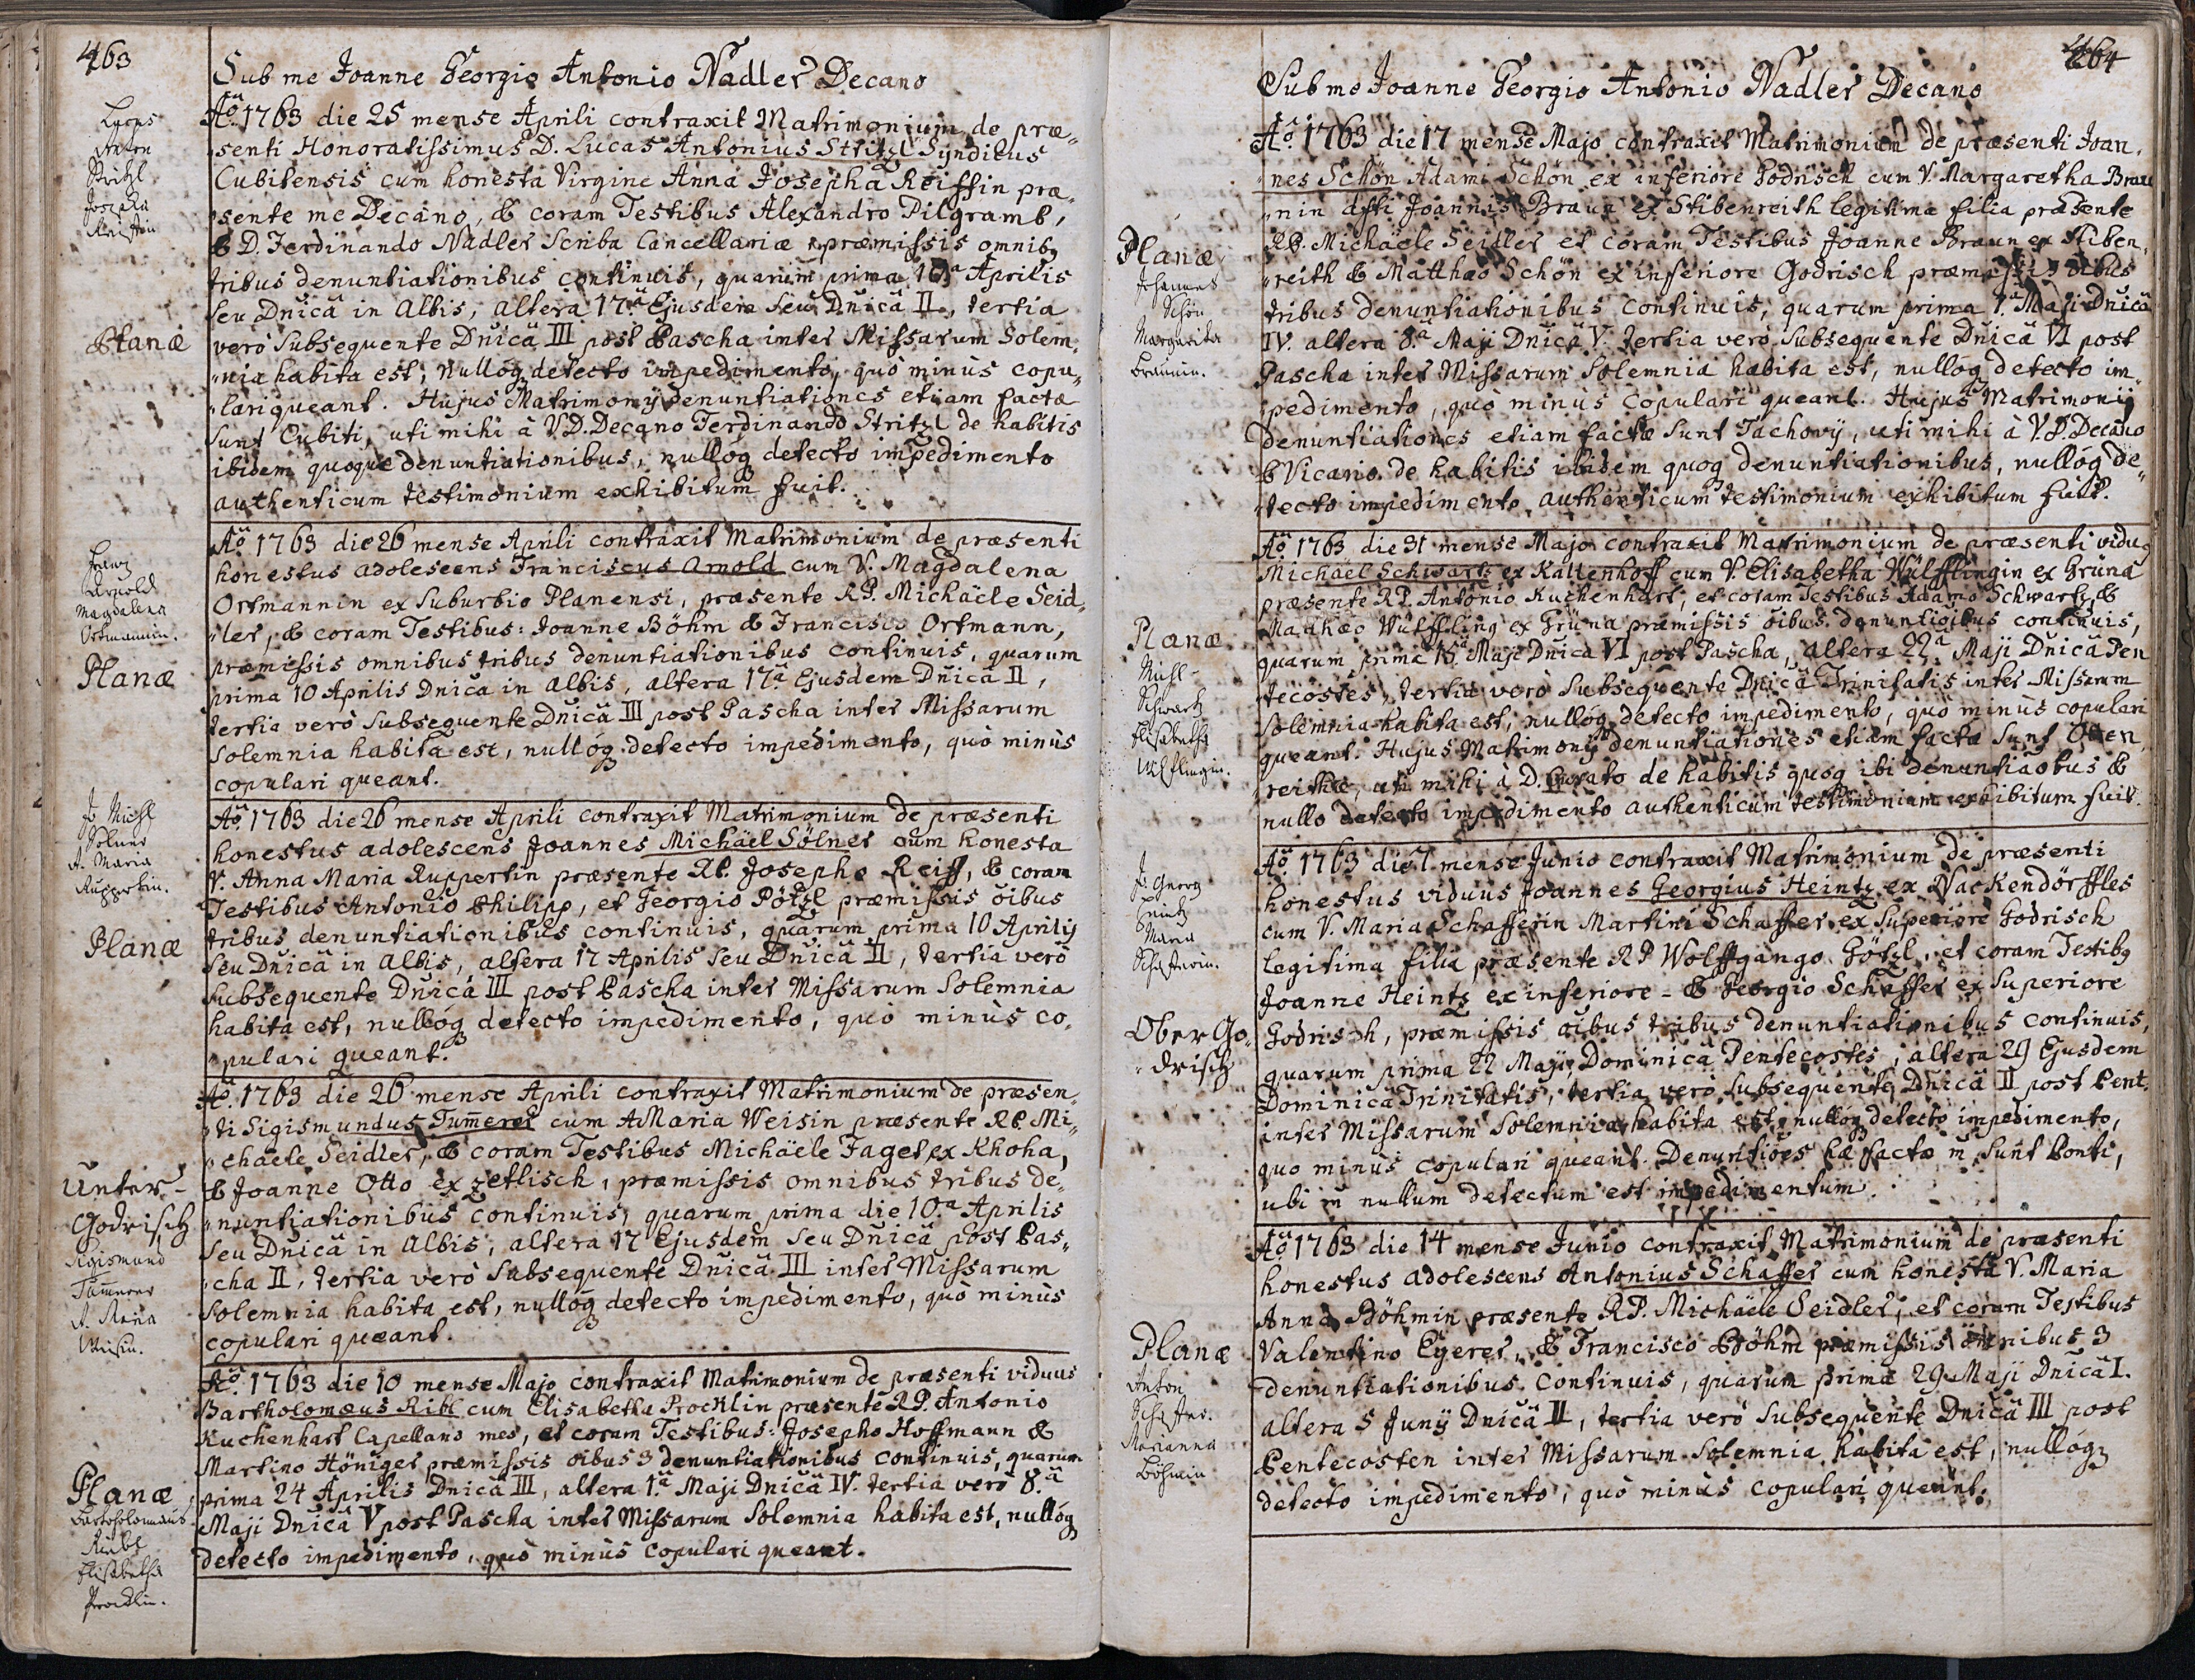 463
Sub me Joanne Georgio Antonio Nadler Decano
Lucas
Anton
Stritzl
Josepha
Reiffin
Planæ
Aõ. 1763 die 25 mense Aprili contraxit Matrimonium de præ„
„senti Honoratissimus D. Lucas Antonius Stritzl Syndicus
Cubitensis cum honesta Virgine Anna Josepha Reiffin præ„
„sente me Decano, & coram Testibus Alexandro Pilgramb,
& D. Ferdinando Nadler Scriba Cancellariæ præmissis omnibq
tribus denuntiationibus continuis, quarum prima 10ª Aprilis
seu Dnicâ in Albis, altera 17ª Ejusdem seu Dnicâ II, tertia
verò subsequente Dnicâ III post Pascha inter Missarum Solem„
„nia habita est, nullóqз detecto impedimento, quò minùs copu„
„lari queant. Hujus Matrimonÿ denuntiationes etiam factæ
sunt Cubiti, uti mihi à V.D. Decano Ferdinando Stritzl de habitis
ibidem quoque denuntiationibus, nullóqз detecto impedimento
authenticum testimonium exhibitum fuit.
Frantz
Arnold
Magdalena
Ortmannin.
Planæ
Aõ. 1763 die 26 mense Aprili contraxit Matrimonium de præsenti
honestus adolescens Franciscus Arnold cum V. Magdalena
Ortmannin ex Suburbio Planensi, præsente RP. Michäele Seid„
„ler, & coram Testibus: Joanne Böhm & Francisco Ortmann,
præmissis omnibus tribus denuntiationibus continuis, quarum
prima 10 Aprilis Dnicâ in Albis, altera 17ª Ejusdem Dnicâ II,
tertia verò subsequente Dnicâ III post Pascha inter Missarum
Solemnia habita est, nullóqз detecto impedimento, quò minùs
copulari queant.
J. Michl
Sölner
A. Maria
Ruppertin.
Planæ
Aõ. 1763 die 26 mense Aprili contraxit Matrimonium de præsenti
honestus adolescens Joannes Michäel Sölner cum honesta
V. Anna Maria Ruppertin præsente RP. Josepho Reiff, & coram
Testibus Antonio Philipp, et Georgio Pötzl præmissis õibus
tribus denuntiationibus continuis, quarum prima 10 Aprilÿ
seu Dnicâ in Albis, altera 17 Aprilis seu Dnicâ II, tertia verò
subsequente Dnicâ III post Pascha inter Missarum Solemnia
habita est, nullóqз detecto impedimento, quò minùs co„
„pulari queant.
Unter-
Godrisch
Sigismund
Tum̃erer
A. Maria
Weisin.
Aõ. 1763 die 26 mense Aprili contraxit Matrimonium de præsen„
„ti Sigismundus Tum̃erer cum A Maria Weisin præsente RP. Mi„
„chäele Seidler, & coram Testibus Michäele Faget ex Khoha,
& Joanne Otto ex Zetlisch, præmissis omnibus tribus de„
„nuntiationibus continuis, quarum prima die 10ª Aprilis
seu Dnicâ in Albis, altera 17 Ejusdem seu Dnicâ post Pas„
„cha II, tertia verò subsequente Dnicâ III inter Missarum
Solemnia habita est, nullóqз detecto impedimento, quò minùs
copulari queant.
Planæ
Bartholomæus
Ribl
Elisabetha
Procklin.
Aõ. 1763 die 10 mense Majo contraxit Matrimonium de præsenti viduus
Bartholomæus Ribl cum Elisabetha Procklin præsente RP. Antonio
Kuchenhart Capellano meo, et coram Testibus: Josepho Hoffmann &
Martino Höniger præmissis õibus 3 denuntiationibus continuis, quarum
prima 24 Aprilis Dnicâ III, altera 1ª Maji Dnicâ IV. tertia verò 8ª
Maji Dnicâ V post Pascha inter Missarum Solemnia habita est, nullóqз
detecto impedimento, quò minùs copulari queant.
464
Sub me Joanne Georgio Antonio Nadler Decano
Planæ
Johannes
Schön
Margaretha
Braunin.
Aõ. 1763 die 17 mense Majo contraxit Matrimonium de præsenti Joan„
„nes Schön Adami Schön ex inferiore Godrisch cum V. Margaretha Brau
„nin dfti Joannis Braun ex Stibenreith legitima filia præsente
RP. Michäele Seidler et coram Testibus Joanne Braun ex Stiben„
„reith & Matthæo Schön ex inferiore Godrisch præmissis õibus
tribus denuntiationibus continuis, quarum prima 1ª Maji Dnicâ
IV. altera 8ª Maji Dnicâ V. tertia verò subsequente Dnicâ VI post
Pascha inter Missarum Solemnia habita est, nullóqз detecto im„
„pedimento, quò minùs copulari queant. Hujus Matrimonij
denuntiationes etiam factæ sunt Tachovÿ, uti mihi à V.D. Decano
& Vicario de habitis ibidem quoqз denuntiationibus, nullóqз de„
„tecto impedimento authenticum testimonium exhibitum fuit.
Planæ
Michl
Schwartz
Elisabetha
Wulflingin.
Aõ. 1763 die 31 mense Majo contraxit Matrimonium de præsenti viduq
Michäel Schwartz ex Kaltenhoff cum V. Elisabetha Wülfflingin ex Grüna
præsente RP. Antonio Kuchenhart, et coram Testibus Adamo Schwartz, &
Matthæo Wülffling ex Grüna præmissis õibus denuntiõibus continuis,
quarum prima 15ª Maji Dnicâ VI post Pascha, altera 22ª Maji Dnicâ Pen
„tecostes, tertia verò subsequente Dnicâ Trinitatis inter Missarum
Solemnia habita est, nullóqз detecto impedimento, quò minùs copulari
queant. Hujus Matrimonÿ denuntiationes etiam factæ sunt Otten„
„reithæ, uti mihi à D. Curato de habitis quoqз ibi denuntiaõbus &
nullo detecto impedimento authenticum testimonium exhibitum fuit.
J. Georg
Heintz
Maria
Schafferin.
Ober Go„
„drisch
Aõ. 1763 die 7. mense Junio contraxit Matrimonium de præsenti
honestus viduus Joannes Georgius Heintz ex Nackendörffles
cum V. Maria Schafferin Martini Schaffer ex superiore Godrisch
legitima filia præsente RP Wolffgango Götzl, et coram Testibq
Joanne Heintz ex inferiore - & Georgio Schaffer ex superiore
Godrisch, præmissis õibus tribus denuntiationibus continuis,
quarum prima 22 Maji Dominicâ Pentecostes, altera 29 Ejusdem
Dominicâ Trinitatis, tertia verò subsequente Dnicâ II post Pent.
inter Missarum Solemnia habita est, nullóqз detecto impedimento,
quo minùs copulari queant. Denuntiões hæ factæ m̃ sunt Ponti,
ubi m̃ nullum detectum est impedimentum.
Planæ
Anton
Schaffer.
Marianna
Böhmin
Aõ. 1763 die 14 mense Junio contraxit Matrimonium de præsenti
honestus adolescens Antonius Schaffer cum honesta V. Maria
Anna Böhmin præsente RP. Michäele Seidler, et coram Testibus
Valentino Eyerer, & Francisco Böhm præmissis omnibus 3
denuntiationibus continuis, quarum prima 29 Maji Dnicâ I.
altera 5 Junÿ Dnicâ II, tertia verò subsequente Dnicâ III post
Pentecosten inter Missarum Solemnia habita est, nullóqз
detecto impedimento, quò minùs copulari queant.